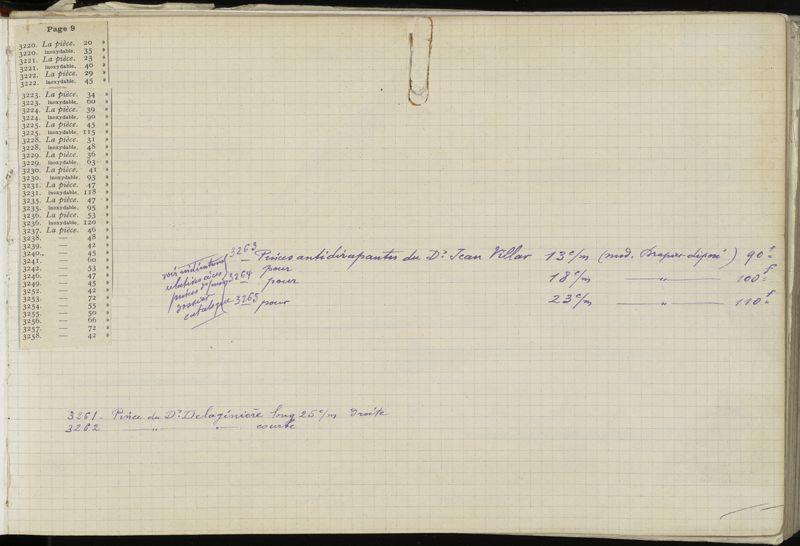 Page 9
3220. La pièce. 20 »
3220. inoxydable. 35 »
3221. La pièce. 23 »
3221. inoxydable. 40 »
3222. La pièce. 29 »
3222. inoxydable. 45 »
3223. La pièce. 34 »
3223. inoxydable. 60 »
3224. La pièce. 39 »
3224. inoxydable. 90 »
3225. La pièce. 45 »
3225. inoxydable. 115 »
3228. La pièce. 31 »
3228. inoxydable. 48 »
3229. La pièce. 36 »
3229. inoxydable. 63 »
3230. La pièce. 41 »
3230. inoxydable. 93 »
3231. La pièce. 47 »
3231. inoxydable. 118 »
3235. La pièce. 47 »
3235. inoxydable. 95 »
3236. La pièce. 53 »
3236. inoxydable. 120 »
3237. La pièce. 46 »
3238. — 48 »
3239. — 42 »
3240. — 45 »
3241. — 60 »
3242. — 53 »
3246. — 47 »
3249. — 45 »
3252. — 42 »
3253. — 72 »
3254. — 55 »
3255. — 50 »
3256. — 66 »
3257. — 72 »
3258. — 42 »
voir indications
relatives à ces
pinces
catalogue
3263 Pinces antidérapantes du Dr Jean Villar 13 c/m (mod. Drapier déposé) 90f
3264 pour 18 c/m " 100f
3265 pour 23 c/m " 110f
3261 - Pince du Dr Delagénière long 25 c/m droite
3262 — " — courbe